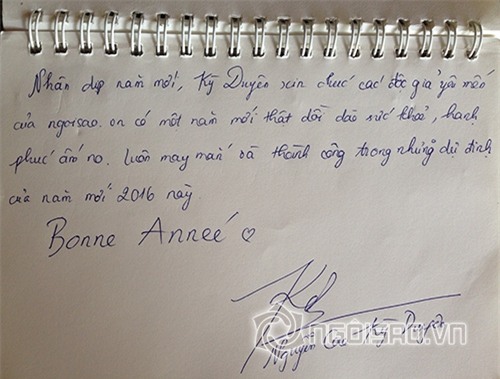 Nhân dịp năm mới, Kỳ Duyên xin chúc các độc giả yêu mến
của ngoisao.vn có một năm mới thật dồi dào sức khoẻ, hạnh
phúc ấm no. Luôn may mắn và thành công trong những dự định
của năm mới 2016 này
Bonne Anneé ♡
Kd
Nguyễn Cao Kỳ Duyên
NGOISAO.VN